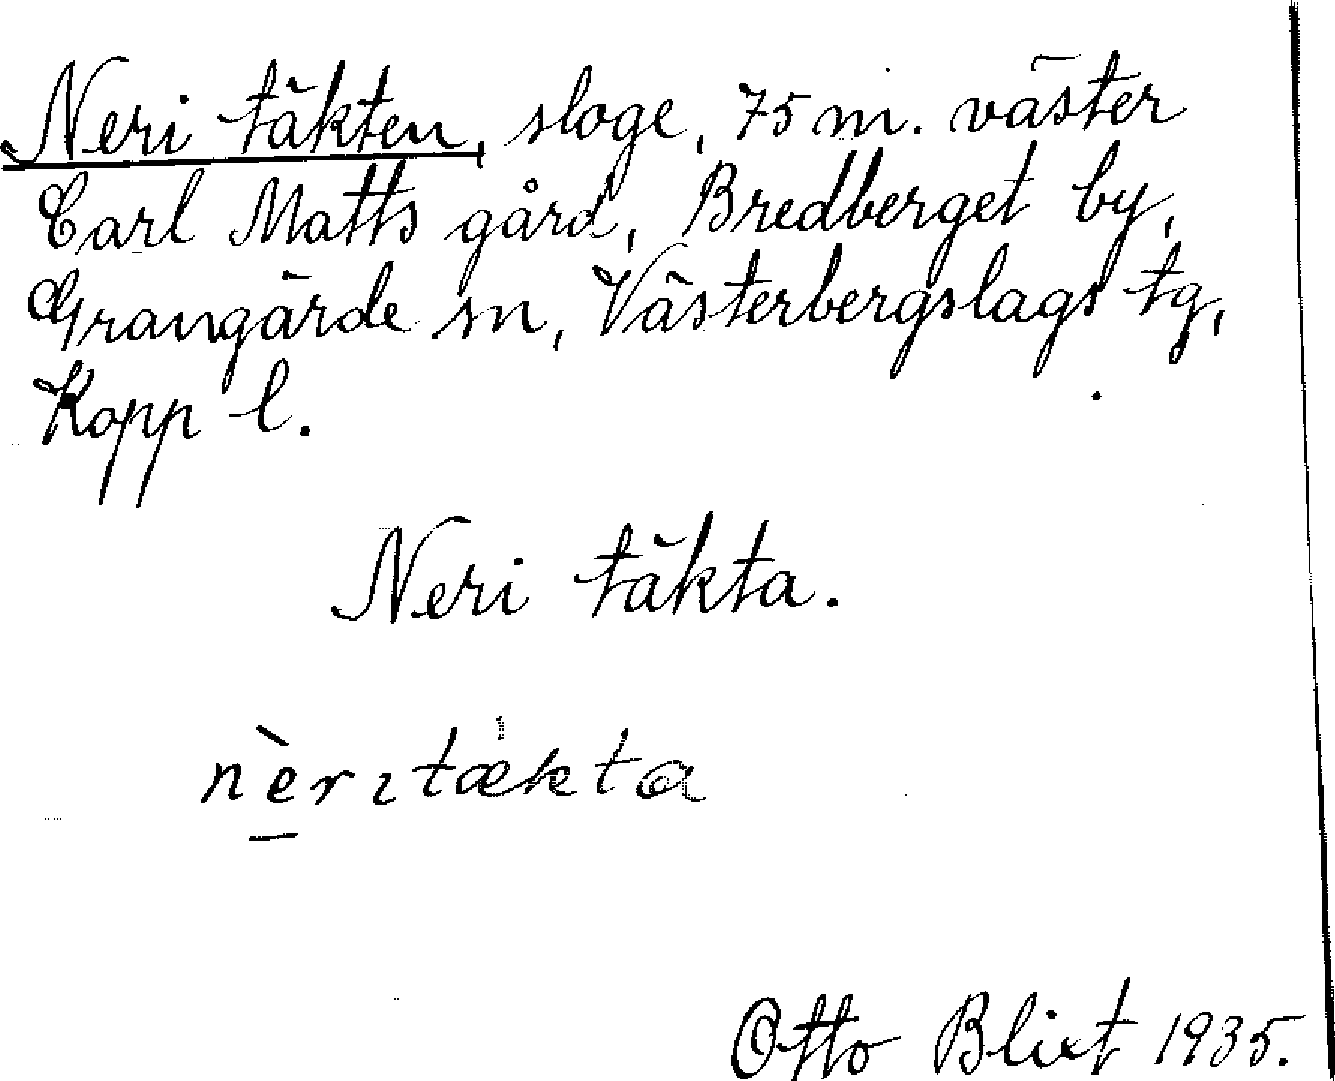 Neri täkten, sloge, 75 m. väster
Carl Matts gård, Bredberget by,
Grangärde sn, Västerbergslags tg,
Kopp l.
Neri täkta.
nè̱rɩtækta
Otto Blixt 1935.